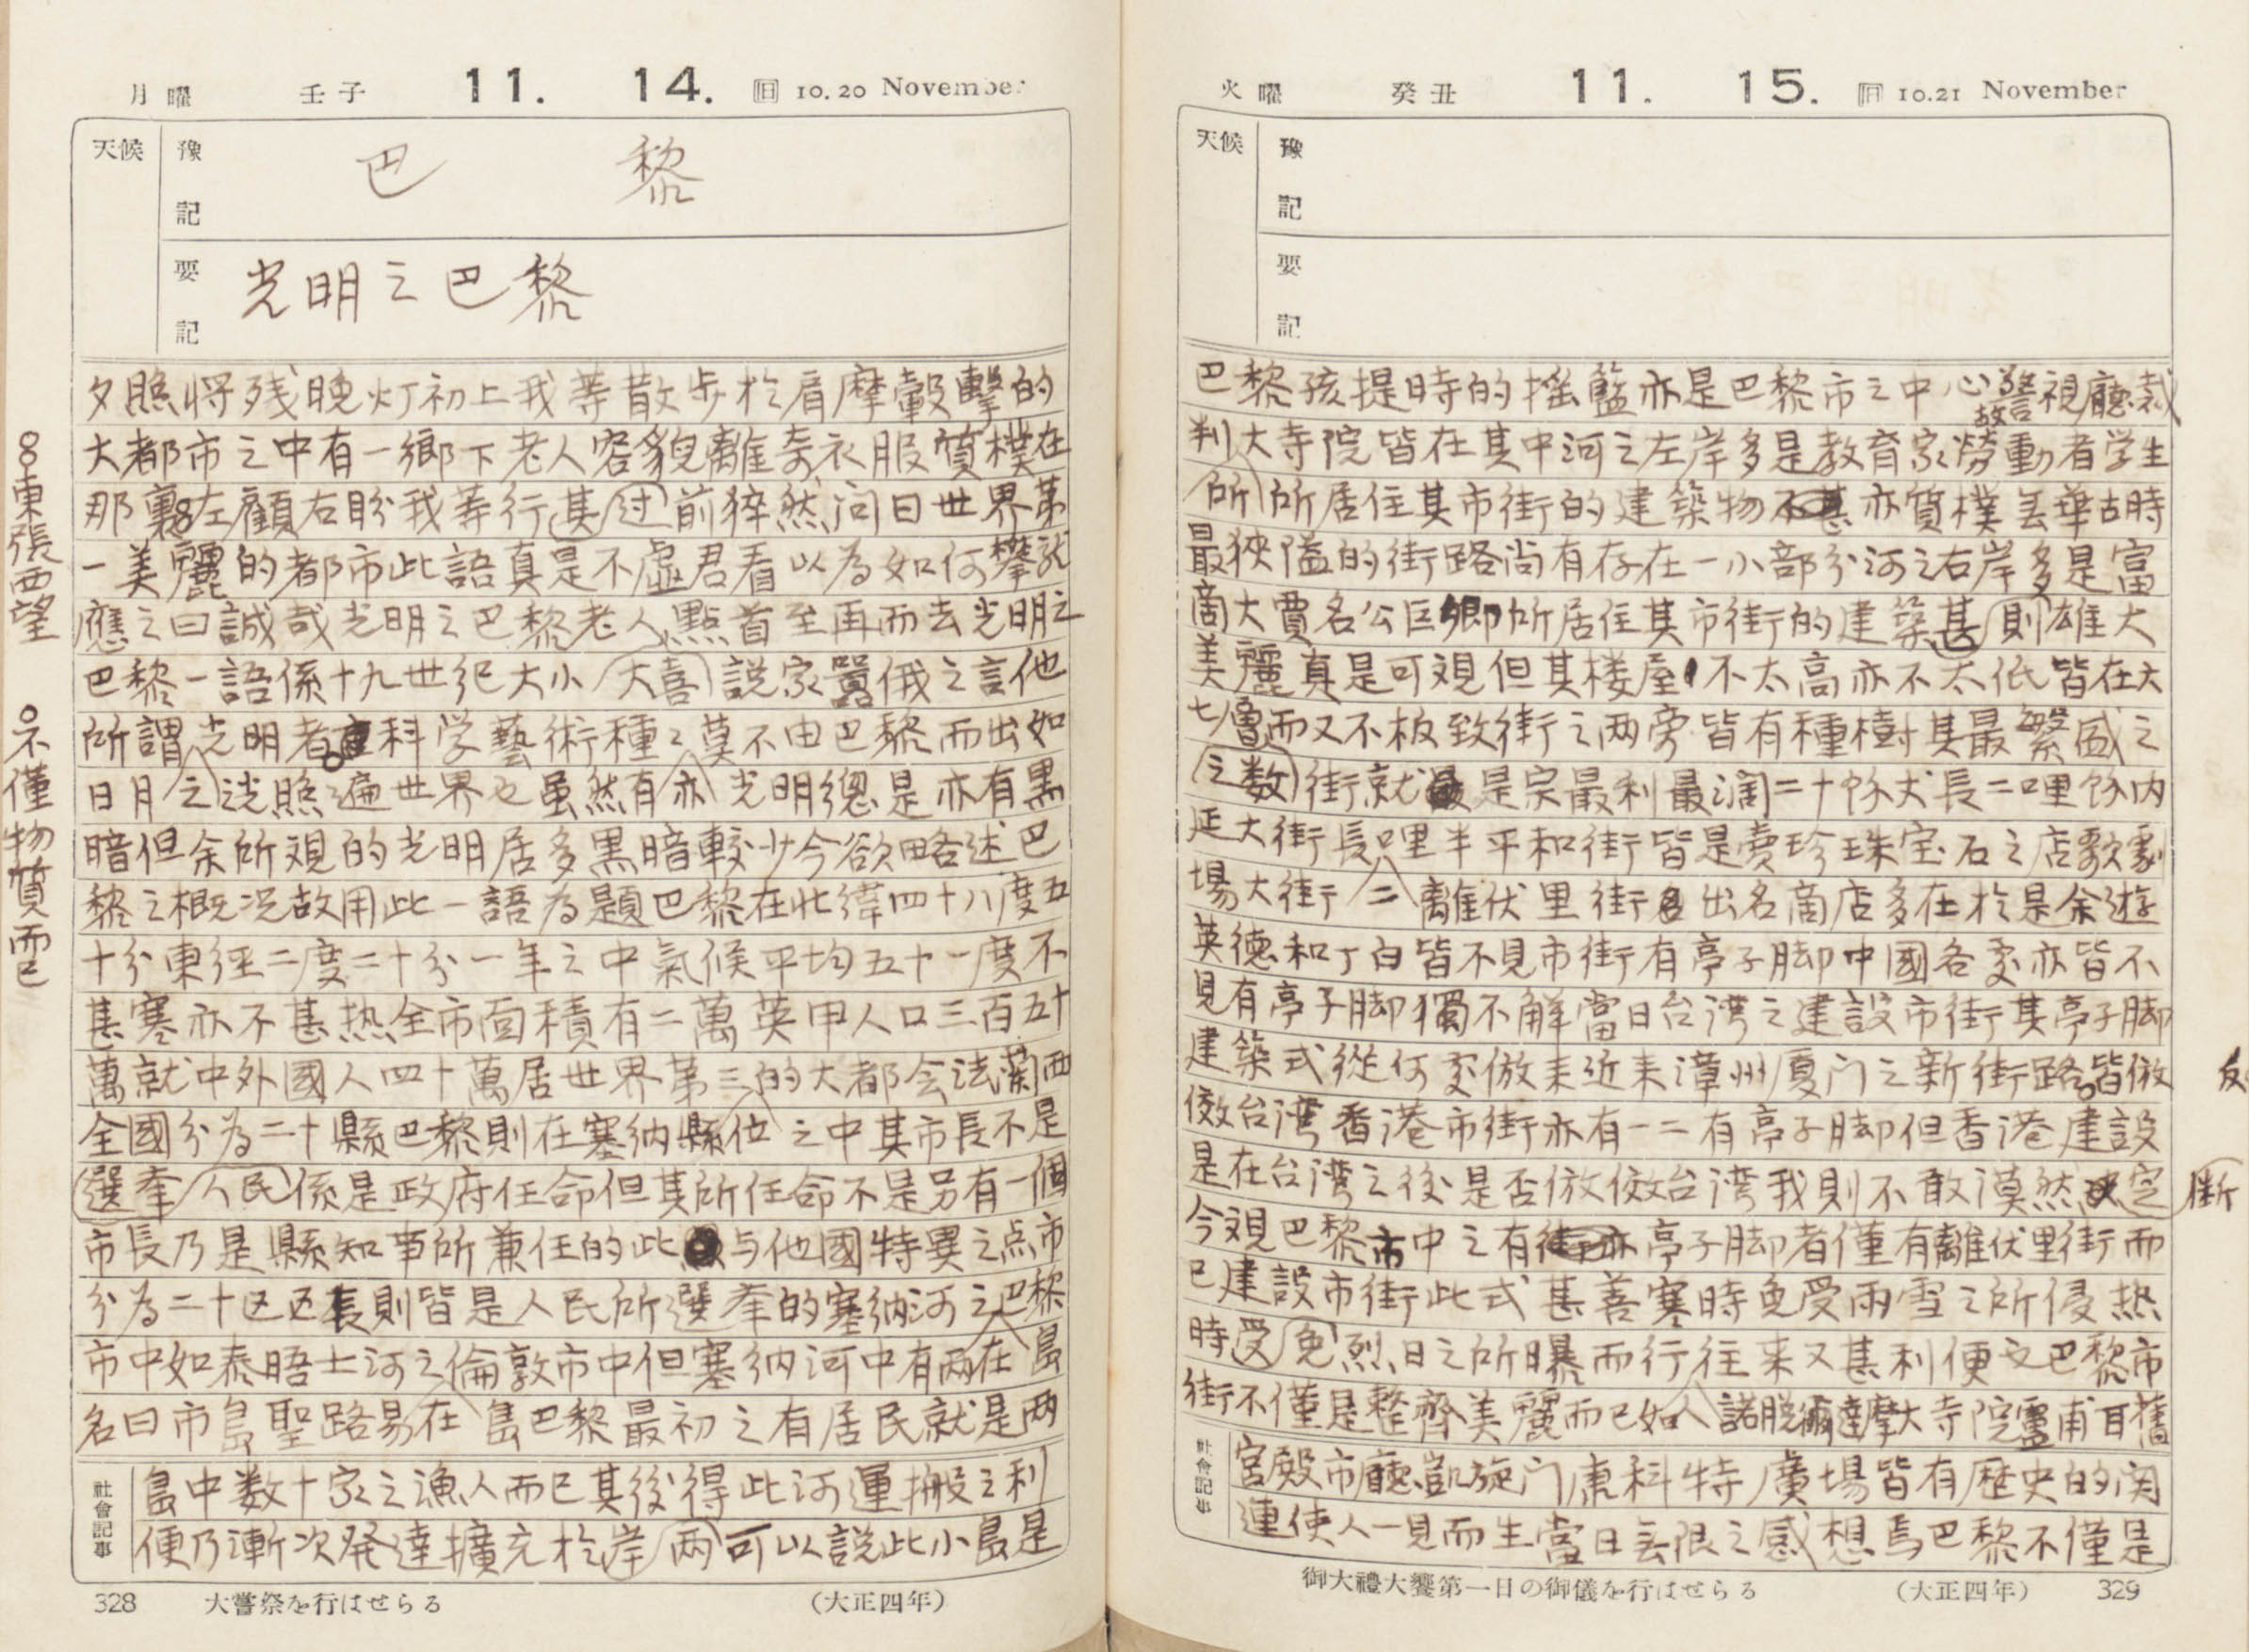 月曜 壬子 11. 14. 旧 10.20 November
天候 豫記 巴黎
要記 光明之巴黎
夕照将残晚灯初上我等散步於肩摩轂擊的
大都市之中有一鄉下老人容貌離奇衣服質樸在
那裏左顧右盼我等行其过前猝然问曰世界第
一美麗的都市此語真是不虛君看以為如何攀就
應之曰誠哉光明之巴黎老人點首至再而去光明之
巴黎一語係十九世纪大小大喜說家囂俄之言他
所謂光明者科学藝術種々莫不由巴黎而出如
日月之光照遍世界也虽然有亦光明總是亦有黑
暗但余所观的光明居多黑暗較少今欲略述巴
黎之概况故用此一語為題巴黎在北緯四十八度五
十分東径二度二十分一年之中氣候平均五十一度不
甚寒亦不甚热全市面積有二萬英甲人口三百五十
萬就中外國人四十萬居世界第三的大都会法蘭西
全國分為二十縣巴黎則在塞納縣位之中其市長不是
選挙人民係是政府任命但其所任命不是另有一個
市長乃是縣知事所兼任的此与他國特異之点市
分為二十区区長則皆是人民所選挙的塞納河之巴黎
市中如泰晤士河之倫敦市中但塞納河中有两在島
名曰市島聖路易在島巴黎最初之有居民就是两
社會記事 島中数十家之漁人而已其後得此河運搬之利
便乃漸次発達擴充於岸两可以説此小島是
328 大嘗祭を行はせらる (大正四年)
東張西望
不僅物質而已
火曜 癸丑 11. 15. 旧 10.21 November
天候 豫記
要記
巴黎孩提時的摇籃亦是巴黎市之中心故警視廳裁
判大寺院皆在其中河之左岸多是教育家勞動者学生
所所居住其市街的建築物不甚亦質樸無華古時
最狹隘的街路尚有存在一小部分河之右岸多是富
商大賈名公巨卿所居住其市街的建築甚則雄大
美麗真是可观但其楼屋不太高亦不太低皆在大
七層而又不板致街之两旁皆有種樹其最繁盛之
之数街就是宗最利最濶二十餘丈長二哩餘内
延大街長哩半平和街皆是賣珍珠宝石之店歌劇
場大街二離伏里街出名商店多在於是余遊
英德和丁白皆不見市街有亭子脚中國各処亦皆不
見有亭子脚獨不解當日台湾之建設市街其亭子脚
建築式從何処倣来近来漳州厦门之新街路皆倣
傚台湾香港市街亦有一二有亭子脚但香港建設
是在台湾之後是否倣傚台湾我則不敢漠然决定断
今观巴黎市中之有亭子脚者僅有離伏里街而
已建設市街此式甚善寒時免受雨雪之所侵热
時受免烈日之所曝而行往来又甚利便也巴黎市
街不僅是整齊美麗而已如人諾脱爾達摩大寺院盧甫耳舊
社會記事 宮殿市廳凱旋门康科特廣場皆有歴史的関
連使人一見而生當日無限之感想焉巴黎不僅是
御大禮大饗第一日の御儀を行はせらる (大正四年) 329
反